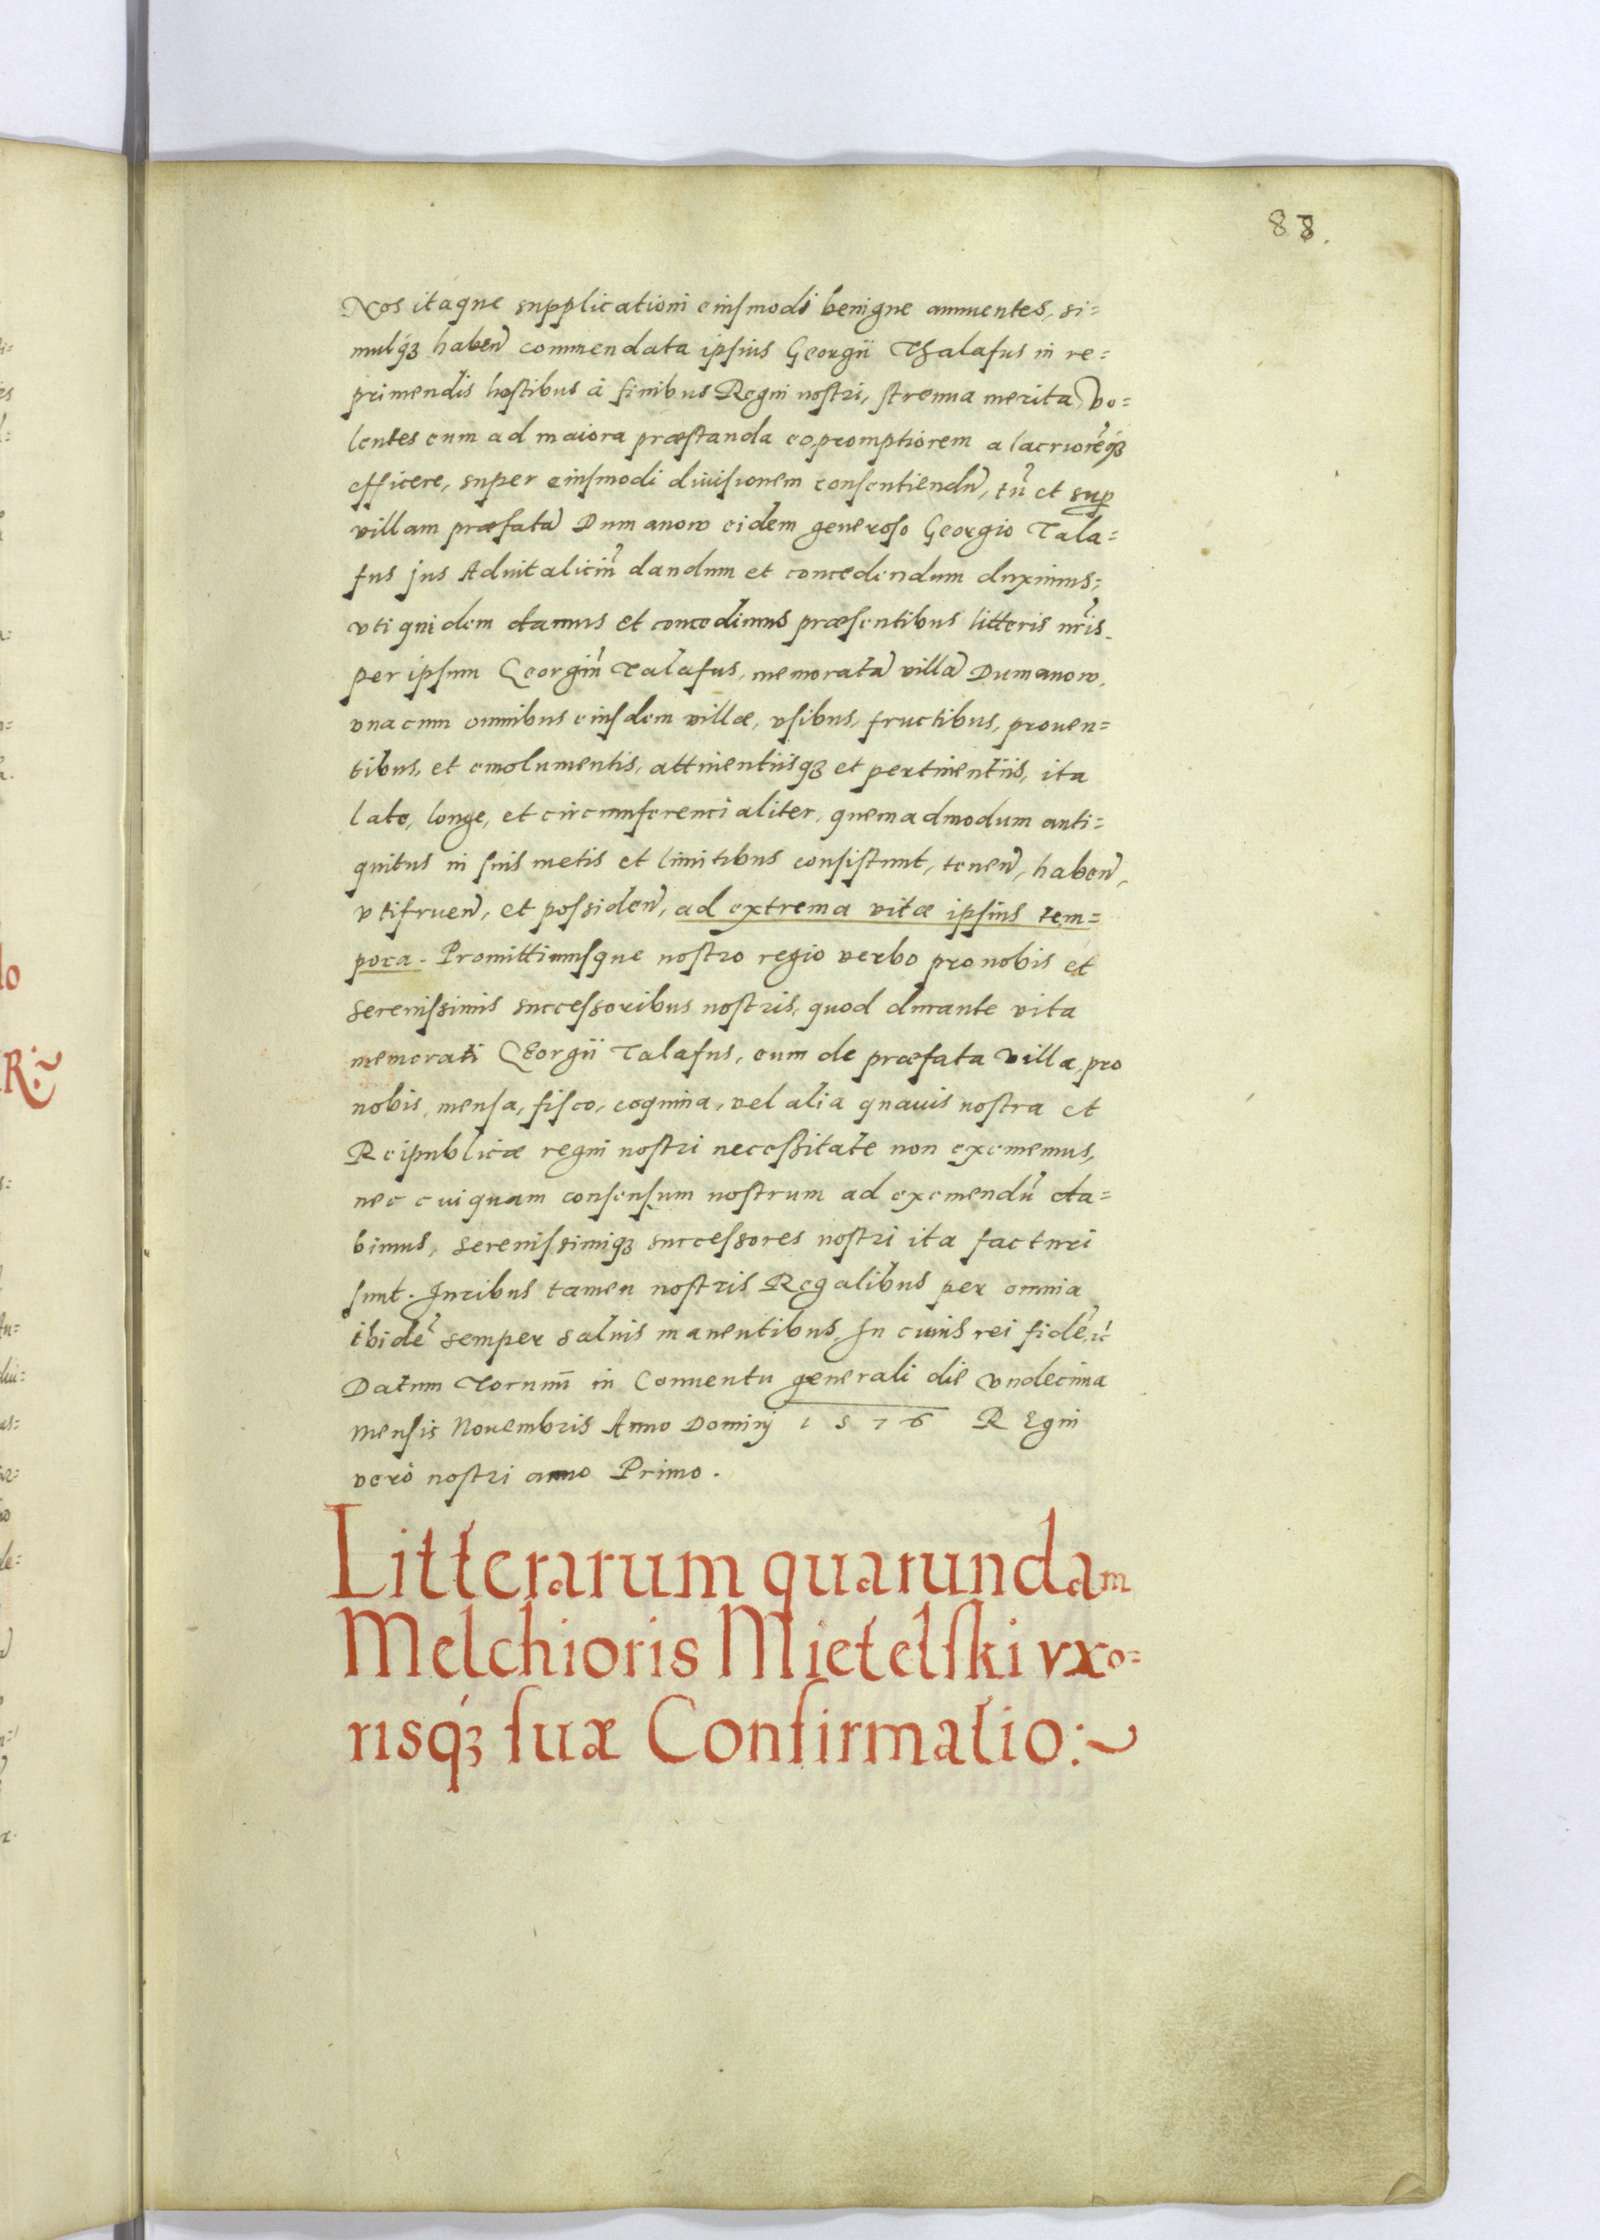 88.
Nos itaque supplicationi eiusmodi benigne annuentes, si=
mulq́ꝫ haben̄ commendata ipsius Georgii Thalafus in re=
primendis hostibus à finibus Regni nostri, strenua merita, vo=
lentes eum ad maiora præstanda eo promptiorem alacriorēq́ꝫ
efficere, super eiusmodi diuisionem consentiendū, tū et sup
villam præfatā Dumanow eidem generoso Georgio Tala=
fus jus Aduitaliciū dandum et concedendum duximus;
vti quidem damus et concedimus præsentibus litteris nr̄is
per ipsum Georgiū Talafus, memoratā villā Dumanow,
vna cum omnibus eiusdem villæ, vsibus, fructibus, prouen=
tibus, et emolumentis, attinentiisqꝫ et pertinentiis, ita
late, longe, et circumferencialiter, quemadmodum anti=
quitus in suis metis et limitibus consistunt, tenen̄, haben̄,
vtifruen̄, et possiden̄, ad extrema vitæ ipsius tem=
pora. Promittimusque nostro regio verbo pro nobis et
serenissimis successoribus nostris, quod durante vita
memorati Georgii Talafus, eum de præfata villa, pro
nobis, mensa, fisco, coquina, vel alia quauis nostra et
Reipublicæ regni nostri necessitate non eximemus,
nec cuiquam consensum nostrum ad eximendū da=
bimus, serenissimiqꝫ successores nostri ita facturi
sunt. Juribus tamen nostris Regalibus per omnia
ibidē semper saluis manentibus. In cuius rei fidē, ꝛc̄
Datum Torunii in Conuentu generali die vndecima
mensis Nouembris Anno Dominj 1576 REgni
verò nostri anno Primo.
Litterarum quarundam
Melchioris Mietelski vxo=
risq́ꝫ suæ Confirmatio:~